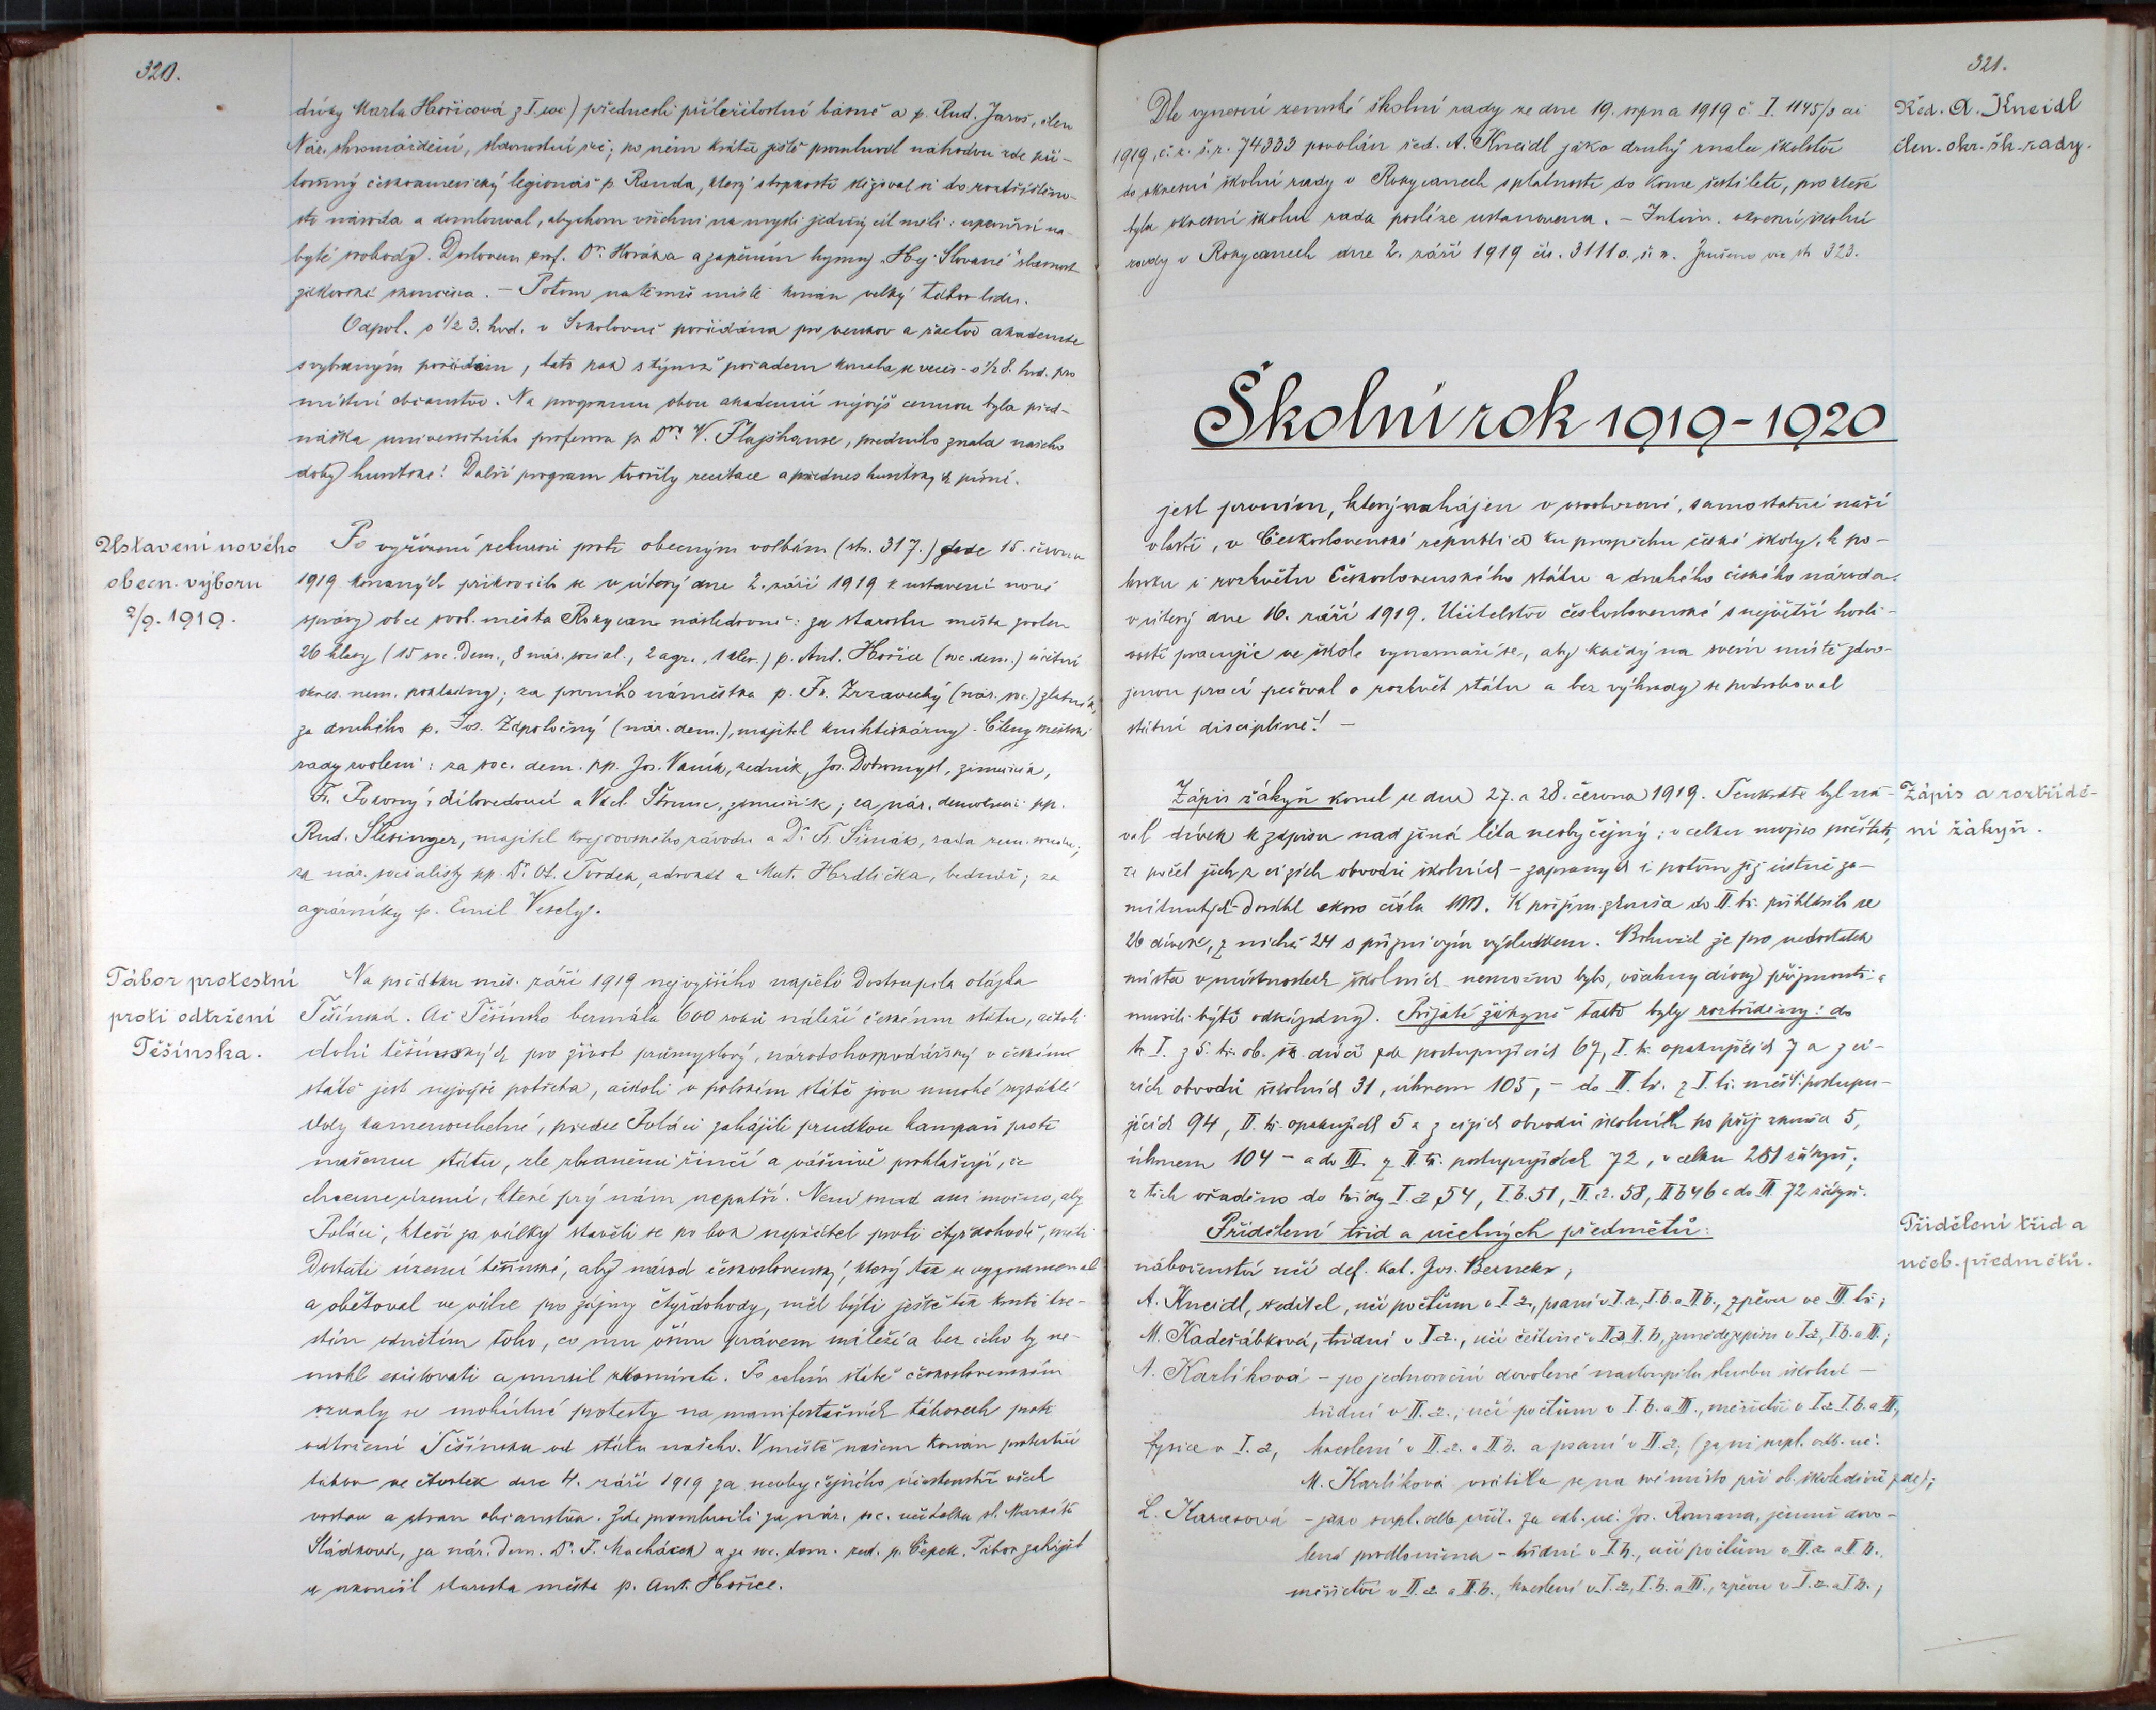 320.
dívky Marta Hořicová z I. tř.) přednesli příležitostné básně a p. Rud. Jaroš, člen
Nár. shromáždění, slavnostní řeč; po něm krátce ještě promluvil náhodou zde pří-
tomný českoamerický legionář p. Randa, který stěžoval si do roztříštěno-
sti národa a domlouval, abychom všichni na mysli jediný cíl měli: upevnění na-
byté svobody. Doslovem prof. Dr. Horáka a zapěním hymny „Hej Slované" slavnost
skončena. – Potom na témž místě konán velký tábor lidu.
Odpol. o ½ 3. hod. v Sokolovně pořádána pro venkov a žactvo akademie
s vybraným pořadem, tato pak s týmž pořadem konala se večer o ½ 8. hod. pro
místní občanstvo. Na programu obou akademií nejvýš cennou byla před-
náška universitního profesora p. Dra V. Flajšhanse, předního znalce našeho
doby husitské! Další program tvořily recitace a přednes husitských písní.
Ustavení nového
obecn. výboru
2/9. 1919.
Po vyřízení rekursů proti obecným volbám (str. 317.) dne 15. června
1919 konaných přikročilo se v úterý dne 2. září 1919 k ustavení nové
správy obce svob. města Rokycan následovně: za starostu města zvolen
26 hlasy (15 soc. dem., 8 nár. social., 2 agr., 1 kler.) p. Ant. Hořice (soc. dem.) účetní
okres. nem. pokladny; za prvního náměstka p. Fr. Zrzavecký (nár. soc.) zlatník,
za druhého p. Jos. Zápotočný (nár. dem.), majitel knihtiskárny. Členy městské
rady zvoleni: za soc. dem. pp. Jos. Vaník, zedník, Jos. Dobromysl, zámečník,
Fr. Pokorný, dílovedoucí a Václ. Štrunc, zámečník; za nár. demokraci pp.
Rud. Šlesinger, majitel krejčovského závodu a Dr. Fr. Šimák, rada zem. soudu;
za nár. socialisty pp. Dr. Ot. Tvrdek, advokát a Mat. Hrdlička, bednář; za
agrárníky p. Emil Veselý.
Tábor protestní
proti odtržení
Těšínska.
Na počátku měs. září 1919 nejvyššího napětí dostoupila otázka
Těšínská. Ač Těšínsko bezmála 600 roků náleží českému státu, ačkoli
dolů těšínských pro život průmyslový, národohospodářský v českém
státě jest nejvýše potřeba, ačkoli v polském státě jsou mnohé rozsáhlé
doly kamenouhelné, předce Poláci zahájili prudkou kampaň proti
našemu státu, zle zbraněmi řinčí a vášnivě prohlašují, že
chceme území, které prý nám nepatří. Není snad ani možno, aby
Poláci, kteří za války stavěli se po bok nepřátel proti čtyřdohodě, měli
dostati území těšínské, aby národ československý, který tak se vyznamenal
a obětoval ve válce pro zájmy čtyřdohody, měl býti ještě tak krutě tre-
stán odnětím toho, co mu vším právem náleží a bez čeho by ne-
mohl existovati a musil zkomírati. Po celém státě československém
ozvaly se mohutné protesty na manifestačních táborech proti
odtržení Těšínska od státu našeho. V městě našem konán protestní
tábor ve čtvrtek dne 4. září 1919 za neobyčejného účastenství všech
vrstev a stran občanstva. Zde promluvili za nár. soc. učitelka sl. Markéta
Sládková, za nár. dem. Dr. J. Macháček a za soc. dem. red. p. Čapek. Tábor zahájil
a ukončil starosta města p. Ant. Hořice.
321.
Řed. A. Kneidl
člen. okr. šk. rady.
Dle vynesení zemské školní rady ze dne 19. srpna 1919 č. I. 1145/3 ai
1919, č. z. š. r. 74333 povolán řed. A. Kneidl jako druhý znalec školství
do okresní školní rady v Rokycanech s platností do konce šestiletí, pro které
byla okresní školní rada posléze ustanovena. – Intim. okresní školní
rady v Rokycanech dne 2. září 1919 čís. 3111 o. š. r. Zrušeno viz str. 323.
Školní rok 1919–1920
jest prvním, který zahájen v osvobozené, samostatné naší
vlasti, v Československé republice ku prospěchu české školy, k po-
kroku i rozkvětu Československého státu a drahého českého národa
v úterý dne 16. září 1919. Učitelstvo československé s největší horli-
vostí pracujíc ve škole vynasnaží se, aby každý na svém místě zdvo-
jenou prací pečoval o rozkvět státu a bez výhrady se podroboval
státní disciplině! –
Zápis a roztřídě-
ní žákyň.
Zápis žákyň konal se dne 27. a 28. června 1919. Tenkráte byl ná-
val dívek k zápisu nad jiná léta neobyčejný; v celku nutno počítati,
že počet jich z cizích obvodů školních – zapsaných i potom jež ústně za-
mítnutých – dosáhl skoro čísla 100. K přijím. zkoušce do II. tř. přihlásilo se
26 dívek, z nichž 24 s příznivým výsledkem. Bohužel že pro nedostatek
místa v místnostech školních nemožno bylo, všechny dívky přijmouti a
musili býti odkázány. Přijaté žákyně takto byly roztříděny: do
tř. I. z 5. tř. ob. šk. dívčí zde postupujících 67, I. tř. opakujících 7 a z ci-
zích obvodů školních 31, úhrnem 105, – do II. tř. z I. tř. měšť. postupu-
jících 94, II. tř. opakujících 5 a z cizích obvodů školních po přij. zkoušce 5,
úhrnem 104 – a do III. z II. tř. postupujících 72, v celku 281 žákyň;
z těch vřaděno do třídy I. a 54, I. b. 51, II. a. 58, II b 46 a do III. 72 žákyň.
Přidělení tříd a
učeb. předmětů.
Přidělení tříd a učebných předmětů:
náboženství učí def. kat. Jos. Bernekr;
A. Kneidl, ředitel, učí počtům v I. a, psaní v I. a, I. b. a II. b., zpěvu ve III. tř.;
M. Kadeřábková, třídní v I. a., učí češtině v II. a, II. b, zeměd. v I. a, I. b. a III.;
A. Karlíková – po jednoroční dovolené nastoupila službu školní –
třídní v II. a., učí počtům v I. b. a III., měřictví v I. a I. b. a III.,
fysice v I. a, kreslení v II. a. a II b. a psaní v II. a; (za ni supl. odb. uč.
M. Karlíková vrátila se na své místo při ob. škole dívčí zde);
L. Karasová – jako supl. odb. učit. za odb. uč. Jos. Romana, jemuž dovo-
lená prodloužena – třídní v I. b., učí počtům v II. a. a II. b.,
měřictví v II. a. a II. b., kreslení v I. a, I. b. a III., zpěvu v I. a. a I. b.;